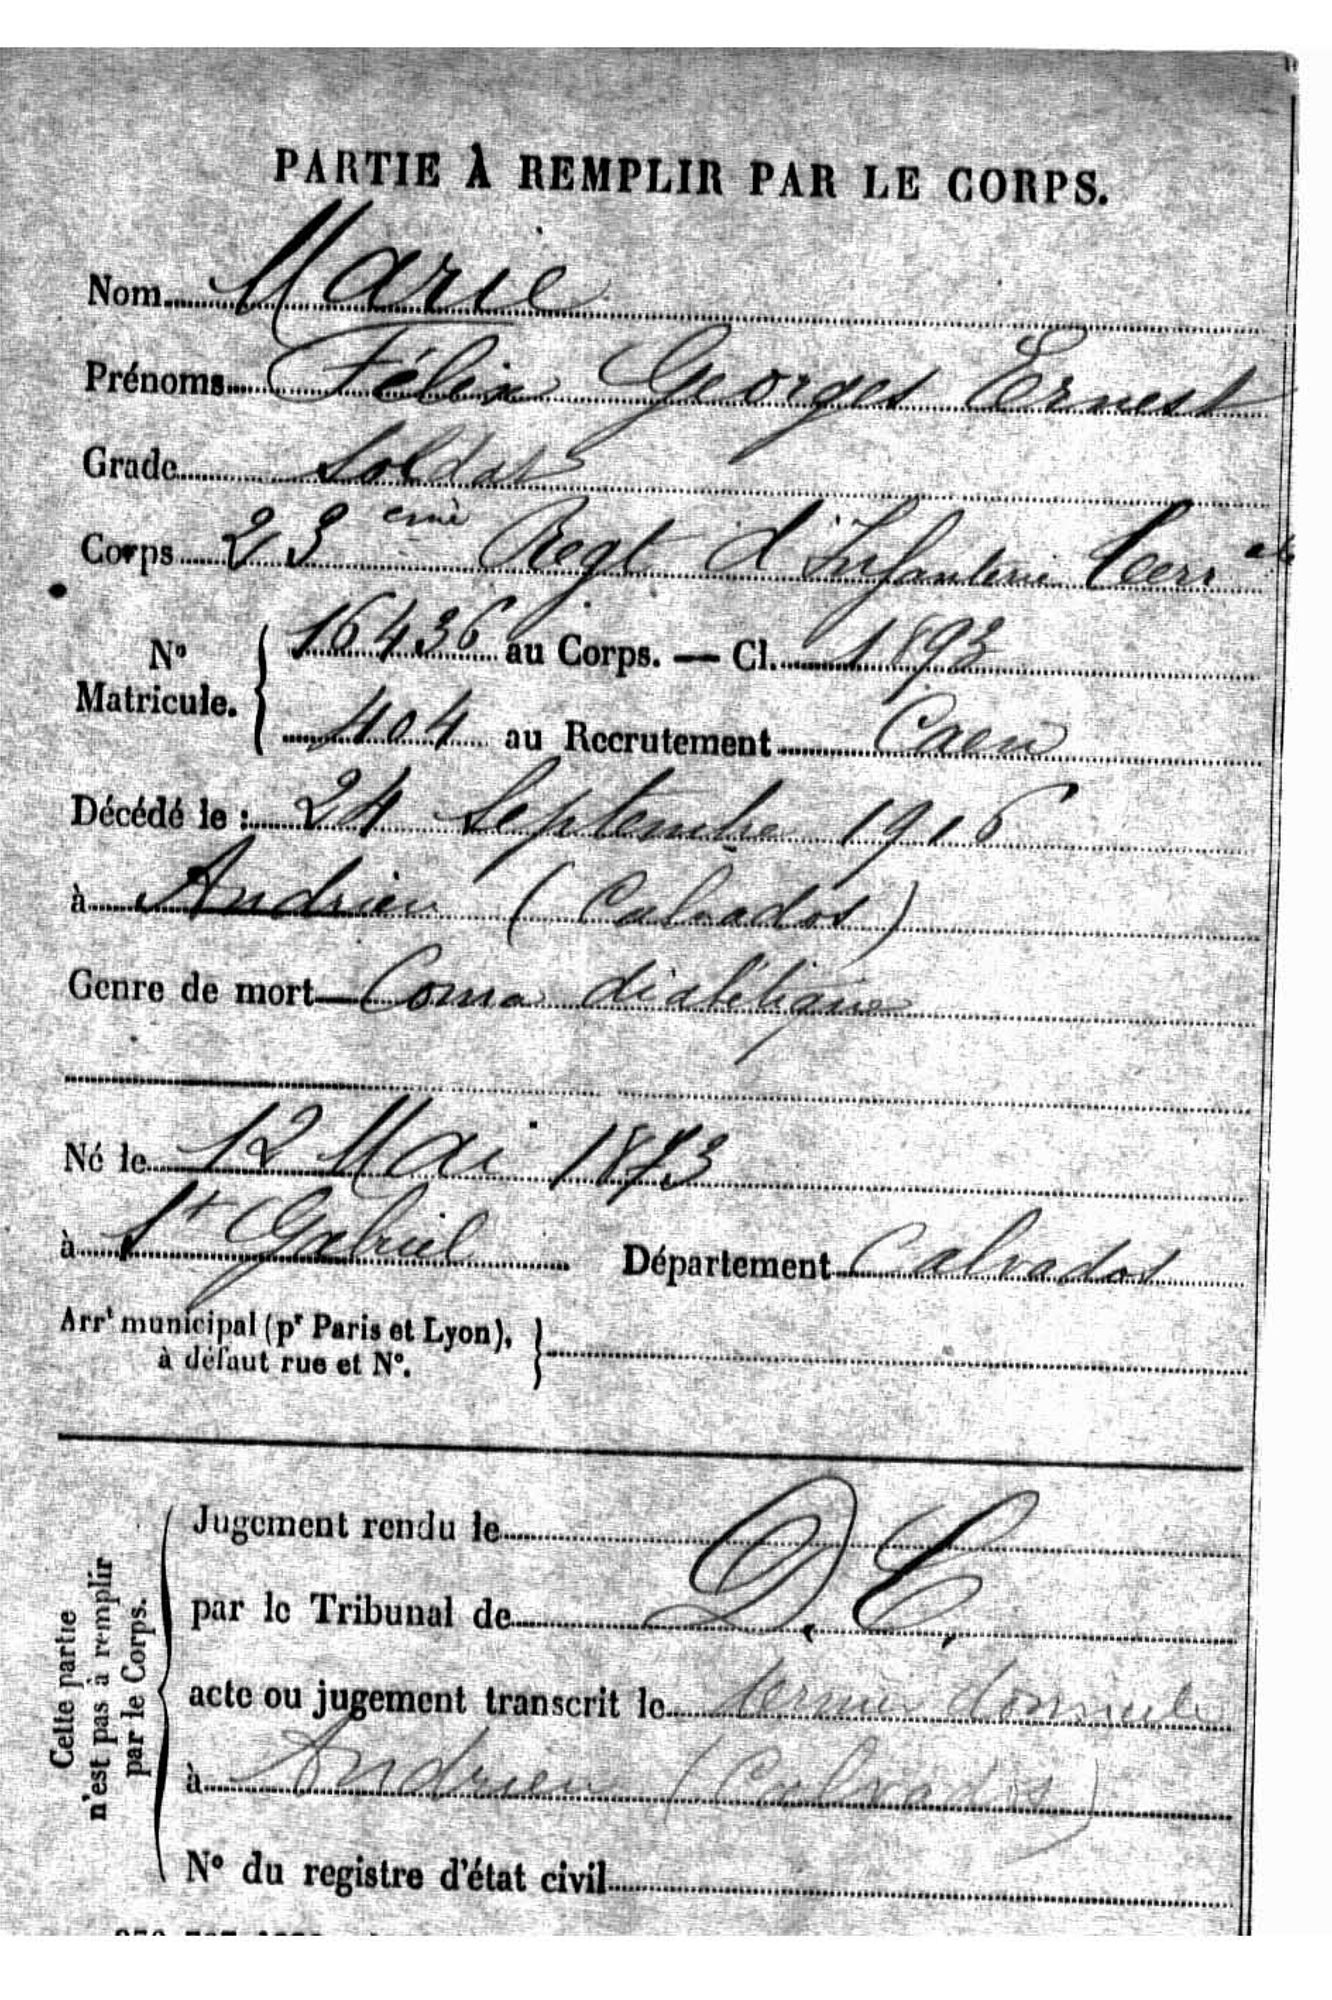 PARTIE À REMPLIR PAR LE CORPS.
Nom Marie
Prénoms Félix Georges Ernest
Grade Soldat
Corps 23 eme Regt d'Infanterie Terr ale
No
Matricule.
16436 au Corps. — Cl. 1893
404 au Recrutement Caen
Décédé le : 24 Septembre 1916
à Andrieu (Calvados)
Genre de mort Coma diabétique
Né le 12 Mai 1873
à St Gabriel Département Calvados
Arrt municipal (pr Paris et Lyon),
à défaut rue et No.
Cette partie
n'est pas à remplir
par le Corps.
Jugement rendu le
par le Tribunal de D. C.
acte ou jugement transcrit le dernier domicile
à Andrieu (Calvados)
No du registre d'état civil